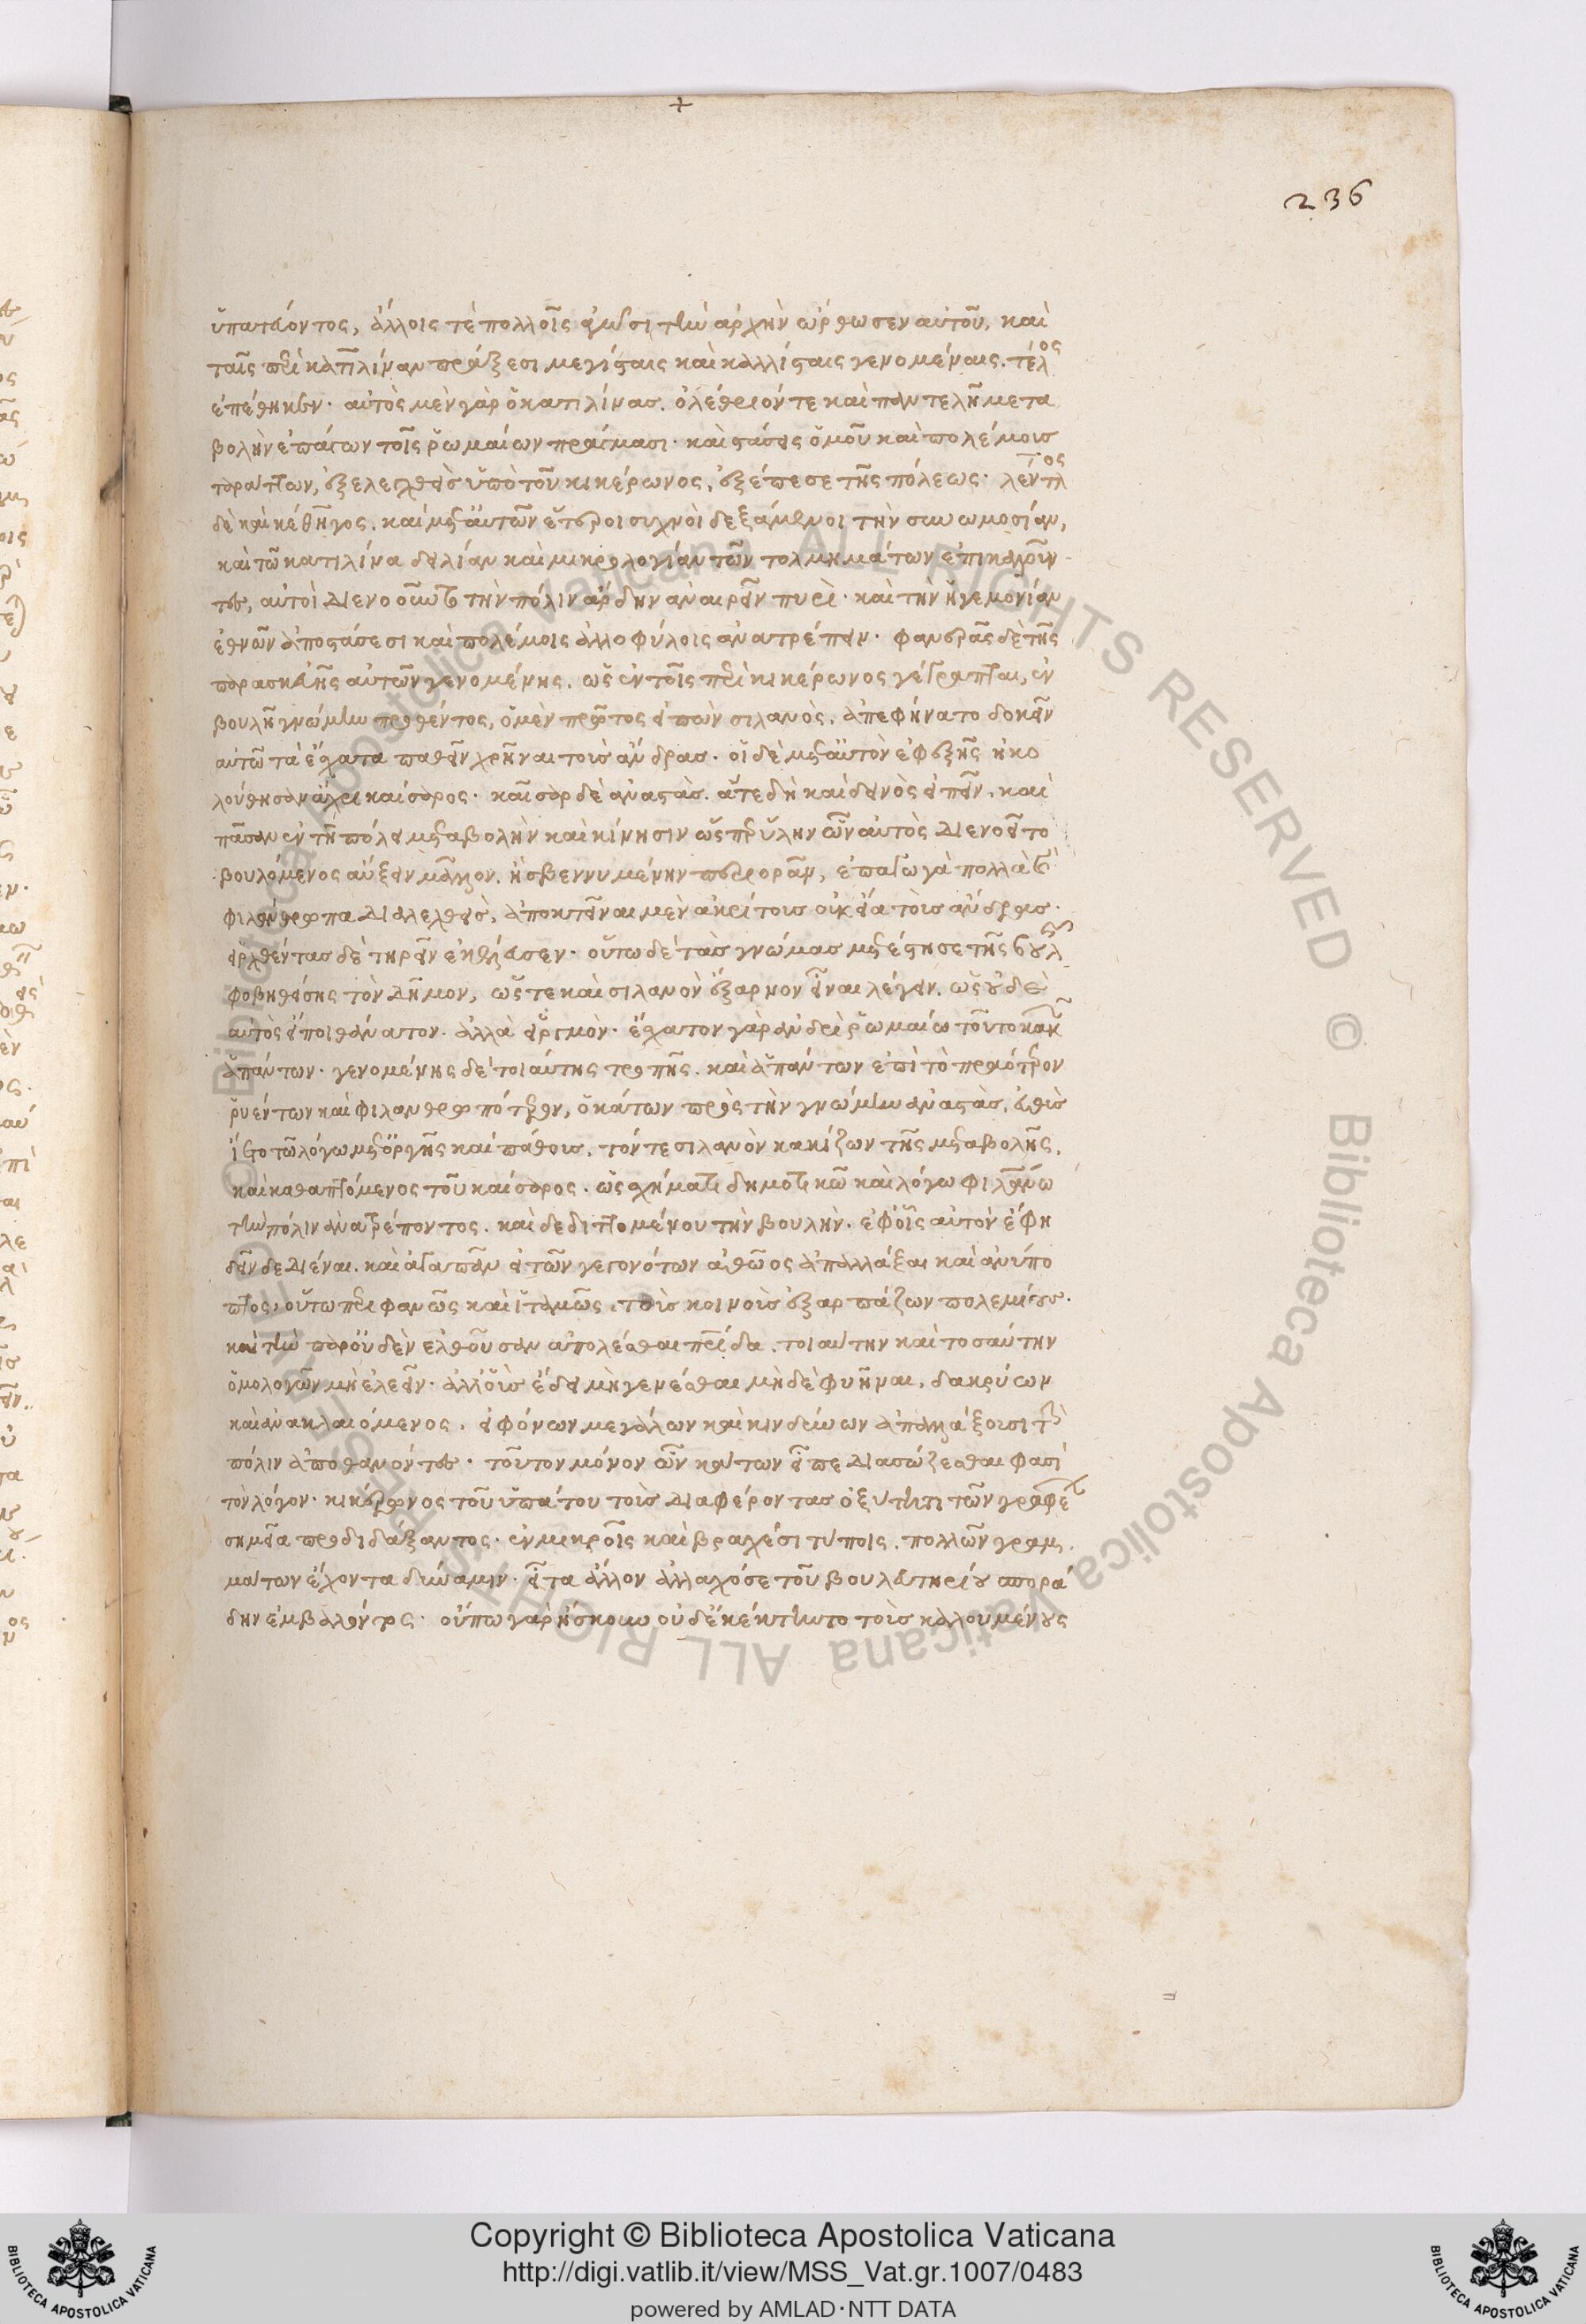 236
ὑπατεύοντος, ἄλλοις τὲ πολλοῖς ἀγῶσι τὴν ἀρχὴν ὤρθωσεν αὐτοῦ, καὶ
ταῖς περὶ κατιλίναν πράξεσι μεγίσταις καὶ καλλίσταις γενομέναις. τέλος
ἐπέθηκεν· αὐτὸς μὲν γὰρ ὁ κατιλίνας. ὀλέθριόν τε καὶ παντελῆ μετα
βολὴν ἐπάγων τοῖς ῥωμαίων πράγμασι· καὶ στάσεις ὁμοῦ καὶ πολέμους
ταράττων, ἐξελεγχθεὶς ὑπὸ τοῦ κικέρωνος, ἐξέπεσε τῆς πόλεως· λέντλος
δὲ καὶ κέθηγος. καὶ μετ' αὐτῶν ἕτεροι συχνοὶ δεξάμενοι τὴν συνωμοσίαν,
καὶ τῶ κατιλίνα δειλίαν καὶ μικρολογίαν τῶν τολμημάτων ἐπικαλοῦν
τες, αὐτοὶ διενοοῦντο τὴν πόλιν ἄρδην ἀναιρεῖν πυρί· καὶ τὴν ἡγεμονίαν
ἐθνῶν ἀποστάσεσι καὶ πολέμοις ἀλλοφύλοις ἀνατρέπειν· φανερᾶς δὲ τῆς
παρασκευῆς αὐτῶν γενομένης. ὡς ἐν τοῖς περὶ κικέρωνος γέγραπται, ἐν
βουλῆ γνώμην προθέντος, ὁ μὲν πρῶτος εἰπὼν σιλανὸς. ἀπεφήνατο δοκεῖν
αὐτῶ τὰ ἔσχατα παθεῖν χρῆναι τοὺς ἄνδρας· οἱ δὲ μετ' αὐτὸν ἐφεξῆς ἠκο
λούθησαν ἄχρι καίσαρος· καῖσαρ δὲ ἀναστὰς. ἅτε δὴ καὶ δεινὸς εἰπεῖν. καὶ
πᾶσαν ἐν τῆ πόλει μεταβολὴν καὶ κίνησιν ὥσπερ ὕλην ὧν αὐτὸς διενοεῖτο
βουλόμενος αὔξειν μᾶλλον. ἢ σβεννυμένην περιορᾶν, ἐπαγωγὰ πολλὰ καὶ
φιλάνθρωπα διαλεχθεὶς, ἀποκτεῖναι μὲν ἀκρίτους οὐκ εἴα τοὺς ἄνδρας·
εἱρχθέντας δὲ τηρεῖν ἐκέλευσεν· οὕτω δὲ τὰς γνώμας μετέστησε τῆς βουλῆς
φοβηθείσης τὸν δῆμον, ὥστε καὶ σιλανὸν ἔξαρνον εἶναι λέγειν. ὡς οὐδὲ
αὐτὸς εἴποι θάνατον. ἀλλὰ εἱργμόν· ἔσχατον γὰρ ἀνδρὶ ῥωμαίω τοῦτο κακῶν
ἁπάντων· γενομένης δὲ τοιαύτης τροπῆς. καὶ ἁπάντων ἐπὶ τὸ πραότερον
ῥυέντων καὶ φιλανθρωπότερον, ὁ κάτων πρὸς τὴν γνώμην ἀναστὰς, εὐθὺς
ἵετο τῶ λόγω μετ' ὀργῆς καὶ πάθους. τόν τε σιλανὸν κακίζων τῆς μεταβολῆς.
καὶ καθαπτόμενος τοῦ καίσαρος. ὡς σχήματι δημοτικῶ καὶ λόγω φιλανθρώπω
τὴν πόλιν ἀνατρέποντος. καὶ δεδιττομένου τὴν βουλὴν. ἐφ' οἷς αὐτὸν ἔφη
δεῖν δεδιέναι. καὶ ἀγαπᾶν εἰ τῶν γεγονότων ἀθῶος ἀπαλλάξει καὶ ἀνύπο
πτος, οὕτω περιφανῶς καὶ ἰταμῶς, τοὺς κοινοὺς ἐξαρπάζων πολεμίους.
καὶ τὴν παρ' οὐδὲν ἐλθοῦσαν ἀπολέσθαι πατρίδα. τοιαύτην καὶ τοσαύτην
ὁμολογῶν μὴ ἐλεεῖν· ἀλλ' οὓς ἔδει μὴ γενέσθαι μὴ δὲ φυῆναι. δακρύων
καὶ ἀνακλαιόμενος. εἰ φόνων μεγάλων καὶ κινδύνων ἀπαλλάξουσι τὴν
πόλιν ἀποθανόντες· τοῦτον μόνον ὧν κάτων εἶπε διασώζεσθαι φασὶ
τὸν λόγον· κικέρωνος τοῦ ὑπάτου τοὺς διαφέροντας ὀξύτητι τῶν γραφέων
σημεῖα προδιδάξαντος· ἐν μικροῖς καὶ βραχέσι τύποις. πολλῶν γραμ
μάτων ἔχοντα δύναμιν· εἶτα ἄλλον ἀλλαχόσε τοῦ βουλευτηρίου σπορά
δην ἐμβαλόντος· οὔπω γὰρ ἤσκουν οὐδ' ἐκέκτηντο τοὺς καλουμένους
Copyright © Biblioteca Apostolica Vaticana
http://digi.vatlib.it/view/MSS_Vat.gr.1007/0483
powered by AMLAD·NTT DATA